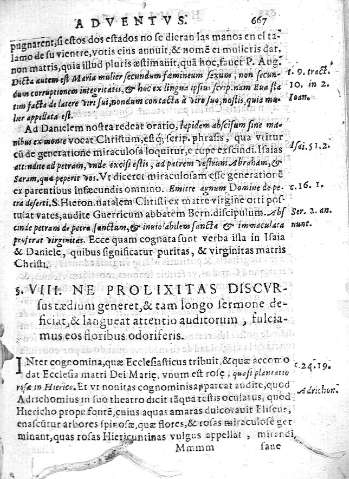 ADVENTVS. 667
pugnarent, si estos dos estados no se dieran las manos en el ta-
lamo de su vientre, votis eius annuit, & nomē ei mulieris dat,
non matris, quia illud pluris æstimauit, quā hoc, faucet P. Aug.
Dicta autem est Maria mulier secundum fœmineum sexum, non secun-
dum corruptionem integritatis, & hoc ex lingua ipsius scrip. nam Eua sta
tim facta de latere viri sui, nondum contacta à viro suo, nostis, quia mu-
lier appellata est.
t. 9. tract.
10. in 2.
Ioan.
Ad Danielem nostra redeat oratio, lapidem abscisum sine ma-
nibus ex monte vocat Christum, est q̃; scrip. phrasis, qua vtitur
cū de generatione miraculosa loquitur, e rupe exscindi. Isaias
attendite ad petram, vnde excisi estis, ad patrem vestrum Abraham, &
Saram, quæ peperit vos. Vt diceret miraculosam esse generationē
ex parentibus infæcundis omnino. Emitte agnum Domine de pe-
tra deserti, S. Hieron. natalem Christi ex matre virgine orti pos-
tulat vates, audite Guerricum abbatem Bern. discipulum. Abs
cinde petram de petra sanctum, & inviolabilem sancta & immaculata
proferat virginitas. Ecce quam cognata sunt verba illa in Isaia
& Daniele, quibus significatur puritas, & virginitas matris
Christi.
Isai. 51. 2.
c. 16. 1.
Ser. 2. an
nunt.
§. VIII. NE PROLIXITAS DISCVR-
sus tædium generet, & tam longo sermone de-
ficiat, & langueat attentio auditorum, fulcia-
mus eos floribus odoriferis.
INter cognomina, quæ Ecclesiasticus tribuit, & quæ accomo
dat Ecclesia matri Dei Mariæ, vnum est rosę, quasi plantatio
rosæ in Hierico. Et vt nouitas cognominis appareat audite, quod
Adrichomius in suo theatro dicit tāquā testis oculatus, quod
Hiericho prope fontē, cuius aquas amaras dulcorauit Eliseus,
enascūtur arbores spinosæ, quæ flores, & rosas miraculosè ger
minant, quas rosas Hiericuntinas vulgus appellat, mirandi,
c. 24. 19.
Adrichom.
Mmmm sane